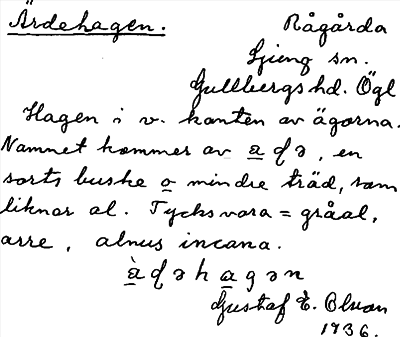 Ärdehagen.
Rågårda
Ljung sn.
Gullbergs hd. Ögl
Hagen i v. kanten av ägorna.
Namnet kommer av a̲qə, en
sorts buske o̲ mindre träd, som
liknar al. Tycks vara = gråal,
arre, alnus incana.
à̲qəha̲gən
Gustaf E. Olson
1936.